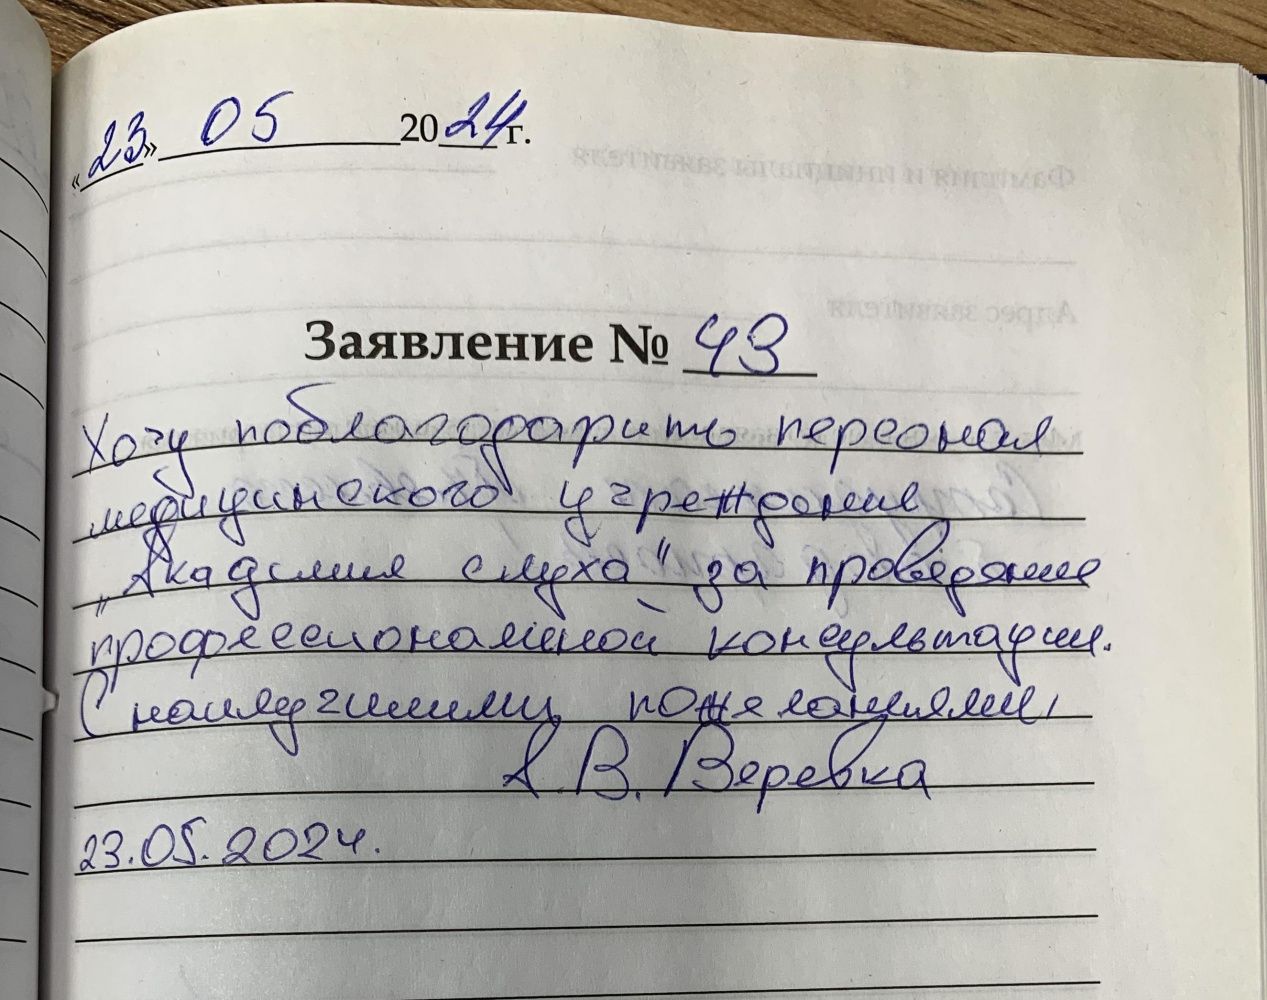 «23» 05 2024 г.
Фамилия и инициалы заявителя
Адрес заявителя
Заявление № 43
Хочу поблагодарить персонал
медицинского учреждения
„Академия слуха" за проведение
профессиональной консультации.
С наилучшими пожеланиями,
А.В. Веревка
23.05.2024.